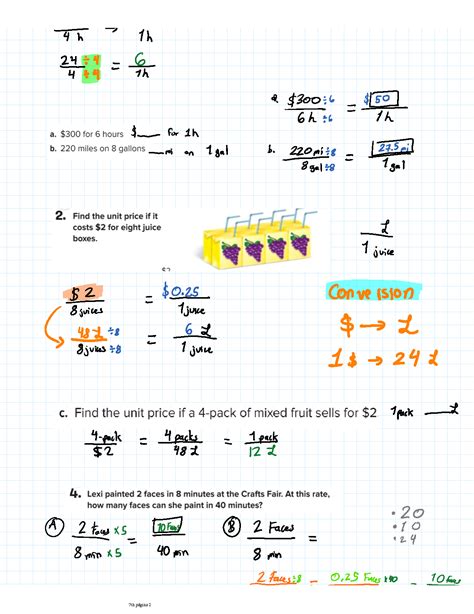 4 h → 1h
24 ÷4 / 4 ÷4 = 6 / 1h
a. $300 ÷6 / 6 h ÷6 = $50 / 1h
a. $300 for 6 hours $___ for 1h
b. 220 miles on 8 gallons ___mi on 1 gal
b. 220 mi ÷8 / 8 gal ÷8 = 27.5 mi / 1 gal
2. Find the unit price if it
costs $2 for eight juice
boxes.
L / 1 juice
$2 / 8 juices = $0.25 / 1 juice
48 L ÷8 / 8 juices ÷8 = 6 L / 1 juice
Conversion
$ → L
1$ → 24 L
c. Find the unit price if a 4-pack of mixed fruit sells for $2 1 pack ___ L
4-pack / $2 = 4 packs / 48 L = 1 pack / 12 L
4. Lexi painted 2 faces in 8 minutes at the Crafts Fair. At this rate,
how many faces can she paint in 40 minutes?
• 20
• 10
• 24
A 2 faces x5 / 8 min x5 = 10 Faces / 40 min
B 2 Faces / 8 min =
2 Faces ÷8 = 0.25 Faces = 10 Faces
7th página 2